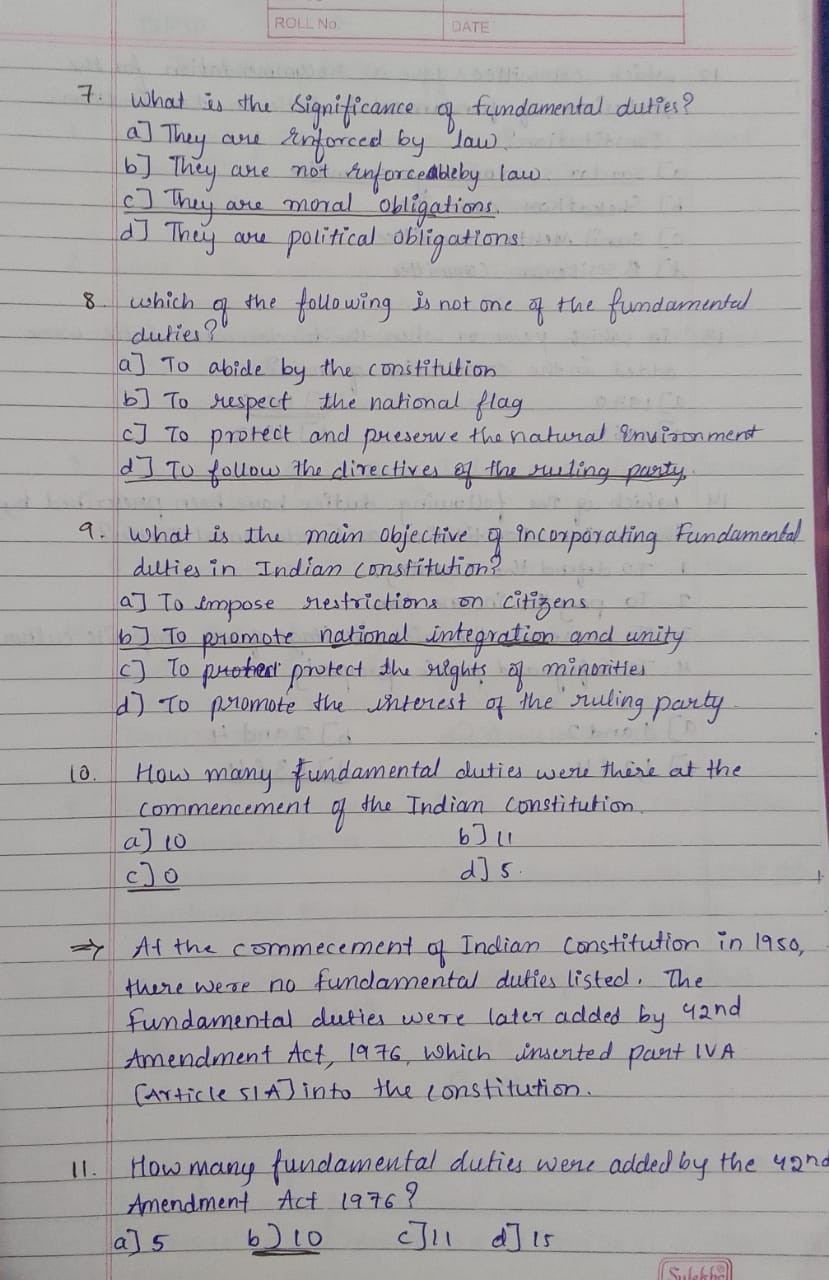 ROLL No.
DATE
7. What is the significance of fundamental duties?
a] They are enforced by law.
b] They are not enforceableby law.
c] They are moral obligations.
d] They are political obligations.
8. which of the following is not one of the fundamental
duties?
a] To abide by the constitution
b] To respect the national flag
c] To protect and preserve the natural Environment
d] To follow the directives of the ruling party.
9. What is the main objective of incorporating Fundamental
duties in Indian constitution?
a] To impose restrictions on citizens
b] To promote national integration and unity
c] To protect the rights of minorities
d] To promote the interest of the ruling party.
10. How many fundamental duties were there at the
commencement of the Indian Constitution.
a] 10 b] 11
c] 0 d] 5.
⇒ At the commecement of Indian Constitution in 1950,
there were no fundamental duties listed. The
fundamental duties were later added by 42nd
Amendment Act, 1976, which inserted part IVA
[Article 51A] into the constitution.
11. How many fundamental duties were added by the 42nd
Amendment Act 1976?
a] 5 b] 10 c] 11 d] 15
Sulekha